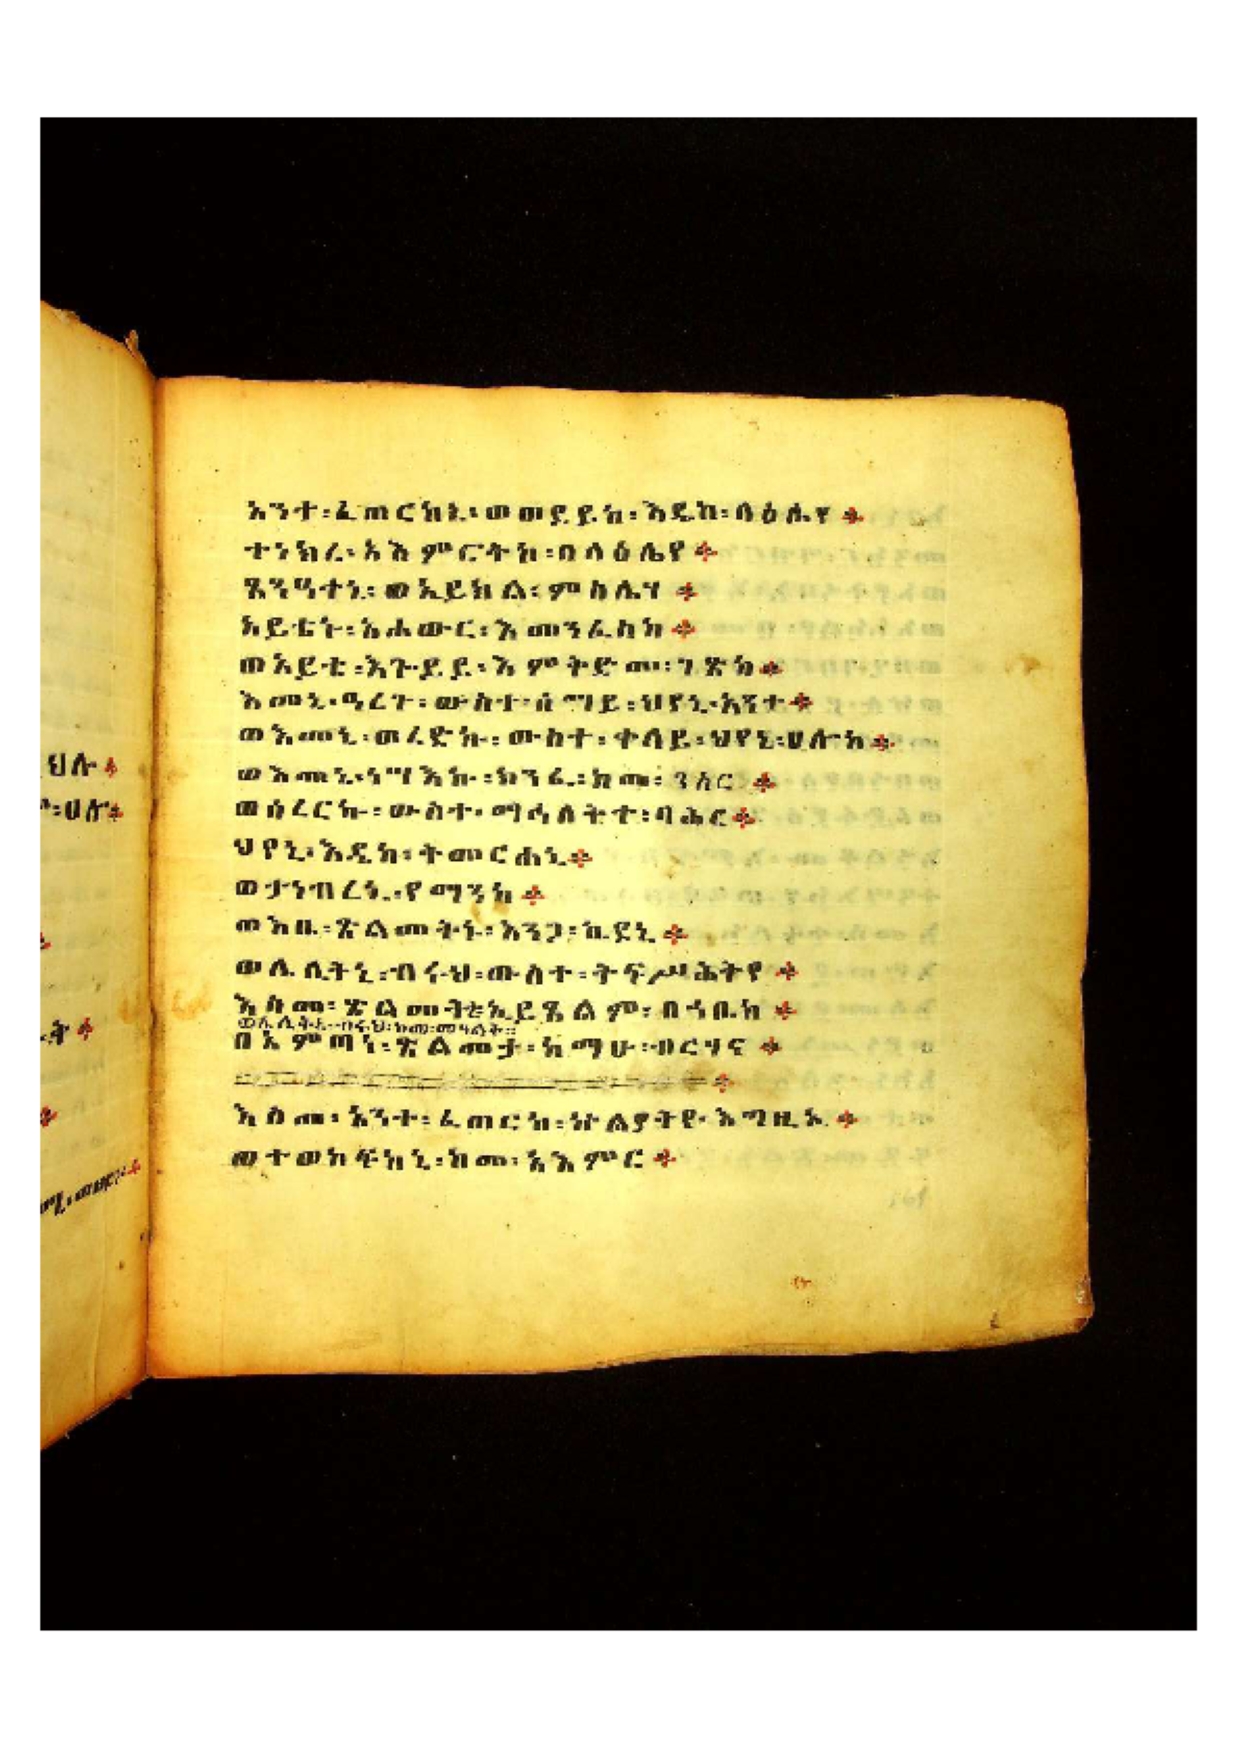 አንተ፡ፈጠርከኒ፡ወወደይከ፡እዴከ፡ላዕሌየ
ተነክረ፡አእምሮትከ፡በላዕሌየ
ጸንዓተኒ፡ወአይክል፡ምስሌሃ
አይቴኑ፡አሐውር፡እመንፈስከ
ወአይቴ፡እጐይይ፡እምቅድመ፡ገጽከ
እመኒ፡ዓረጉ፡ውስተ፡ሰማይ፡ህየኒ፡አንተ
ወእመኒ፡ወረድኩ፡ውስተ፡ቀላይ፡ህየኒ፡ሀሎከ
ወእመኒ፡ነሣእኩ፡ክንፈ፡ከመ፡ንስር
ወሰረርኩ፡ውስተ፡ማኅለቅተ፡ባሕር
ህየኒ፡እዴከ፡ትመርሐኒ
ወታነብረኒ፡የማንከ
ወእቤ፡ጽልመትኑ፡እንጋ፡ኬደኒ
ወሌሊትኒ፡ብሩህ፡ውስተ፡ትፍሥሕትየ
እስመ፡ጽልመትኒ፡ኢይጼልም፡በኀቤከ
ወሌሊትኒ፡ብሩህ፡ከመ፡መዓልት።
በአምጣነ፡ጽልመታ፡ከማሁ፡ብርሃና
እስመ፡አንተ፡ፈጠርከ፡ኵልያትየ፡እግዚኦ
ወተወከፍከኒ፡ከመ፡አእምር
ህሉ
፡ሀሉ